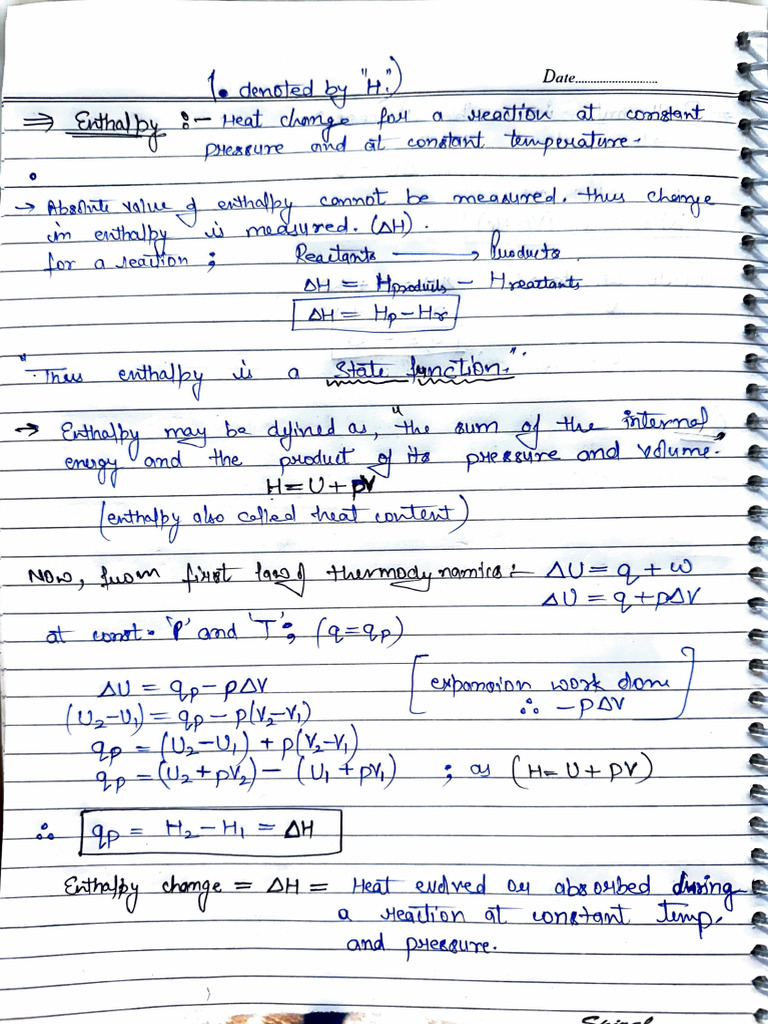 (• denoted by "H".)
Date
⇒ Enthalpy :- Heat change for a reaction at constant
pressure and at constant temperature.
→ Absolute value of enthalpy cannot be measured. thus change
in enthalpy is measured. (ΔH).
for a reaction ; Reactants ⟶ Products
ΔH = Hproducts - Hreactants
ΔH = Hp - Hr
"Thus enthalpy is a State function."
→ Enthalpy may be defined as, "the sum of the internal
energy and the product of its pressure and volume.
H = U + PV
(enthalpy also called heat content)
Now, from first law of thermodynamics :- ΔU = q + w
ΔU = q + pΔV
at const. 'P' and 'T'; (q = qp)
ΔU = qp - pΔV [expansion work done
(U₂-U₁) = qp - p(V₂-V₁) ∴ -pΔV]
qp = (U₂-U₁) + p(V₂-V₁)
qp = (U₂ + pV₂) - (U₁ + pV₁) ; as (H = U + PV)
∴ qp = H₂ - H₁ = ΔH
Enthalpy change = ΔH = Heat evolved or absorbed during
a reaction at constant temp.
and pressure.